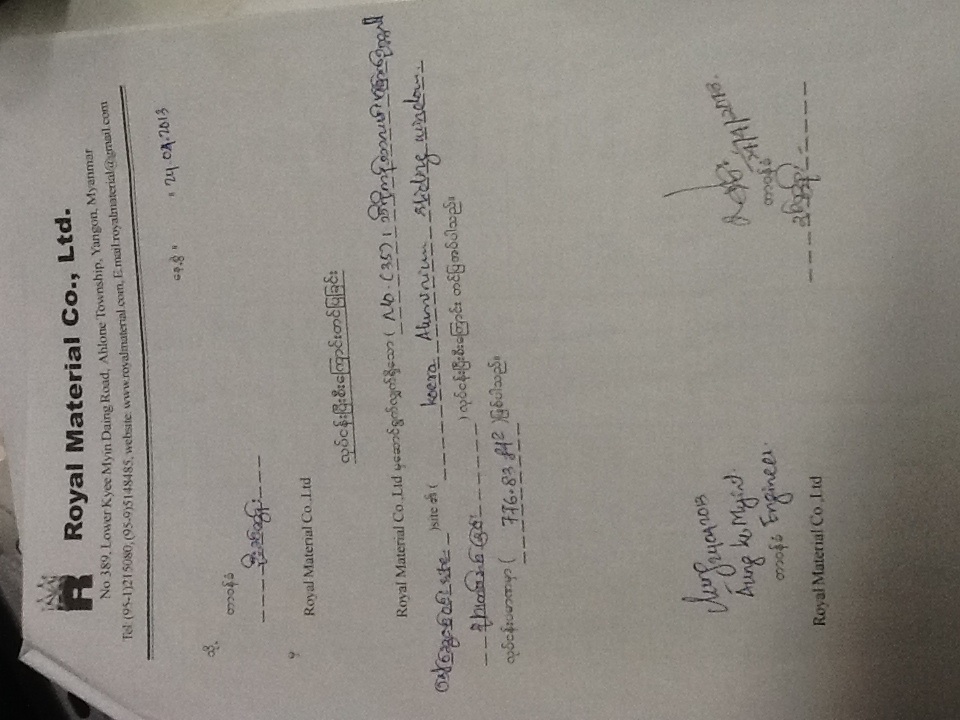 R
Royal Material Co., Ltd.
No 389, Lower Kyee Myin Daing Road, Ahlone Township, Yangon, Myanmar
Tel: (95-1)215080, (95-9)5148485, website: www.royalmaterial.com, E.mail:royalmaterial@gmail.com
နေ့စွဲ ။ ။ 24.04.2013
သို့
တာဝန်ခံ
မှ
Royal Material Co.,Ltd
လုပ်ငန်းပြီးစီးကြောင်းတင်ပြခြင်း
Royal Material Co.,Ltd မှဆောင်ရွက်လျှက်ရှိသော ( No. (35) ၊
site )site ၏ ( koera Aluminium sliding window.
) လုပ်ငန်းပြီးစီးကြောင်း တင်ပြအပ်ပါသည်။
လုပ်ငန်းပမာဏမှာ ( 776.83 ft² )ဖြစ်ပါသည်။
Aung 24042013
Aung ko Myint.
တာဝန်ခံ Engineer.
Royal Material Co.,Ltd
24/4/2013.
တာဝန်ခံ